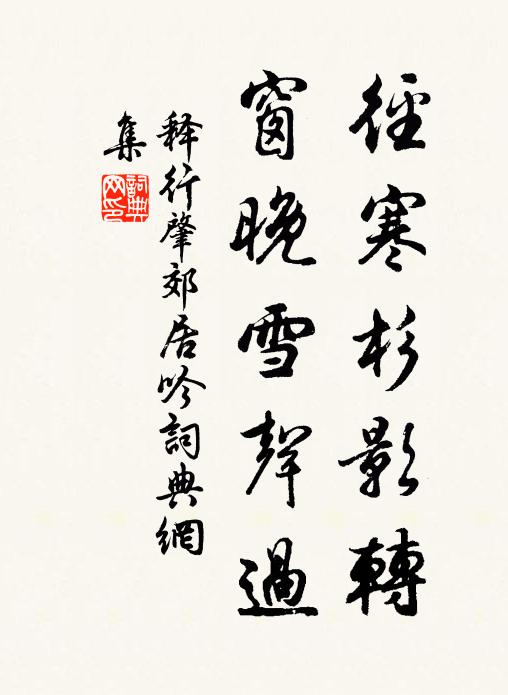 徑寒杉影轉
窗晚雪聲過
释行肇郊居吟詞典網
集
詞典網印